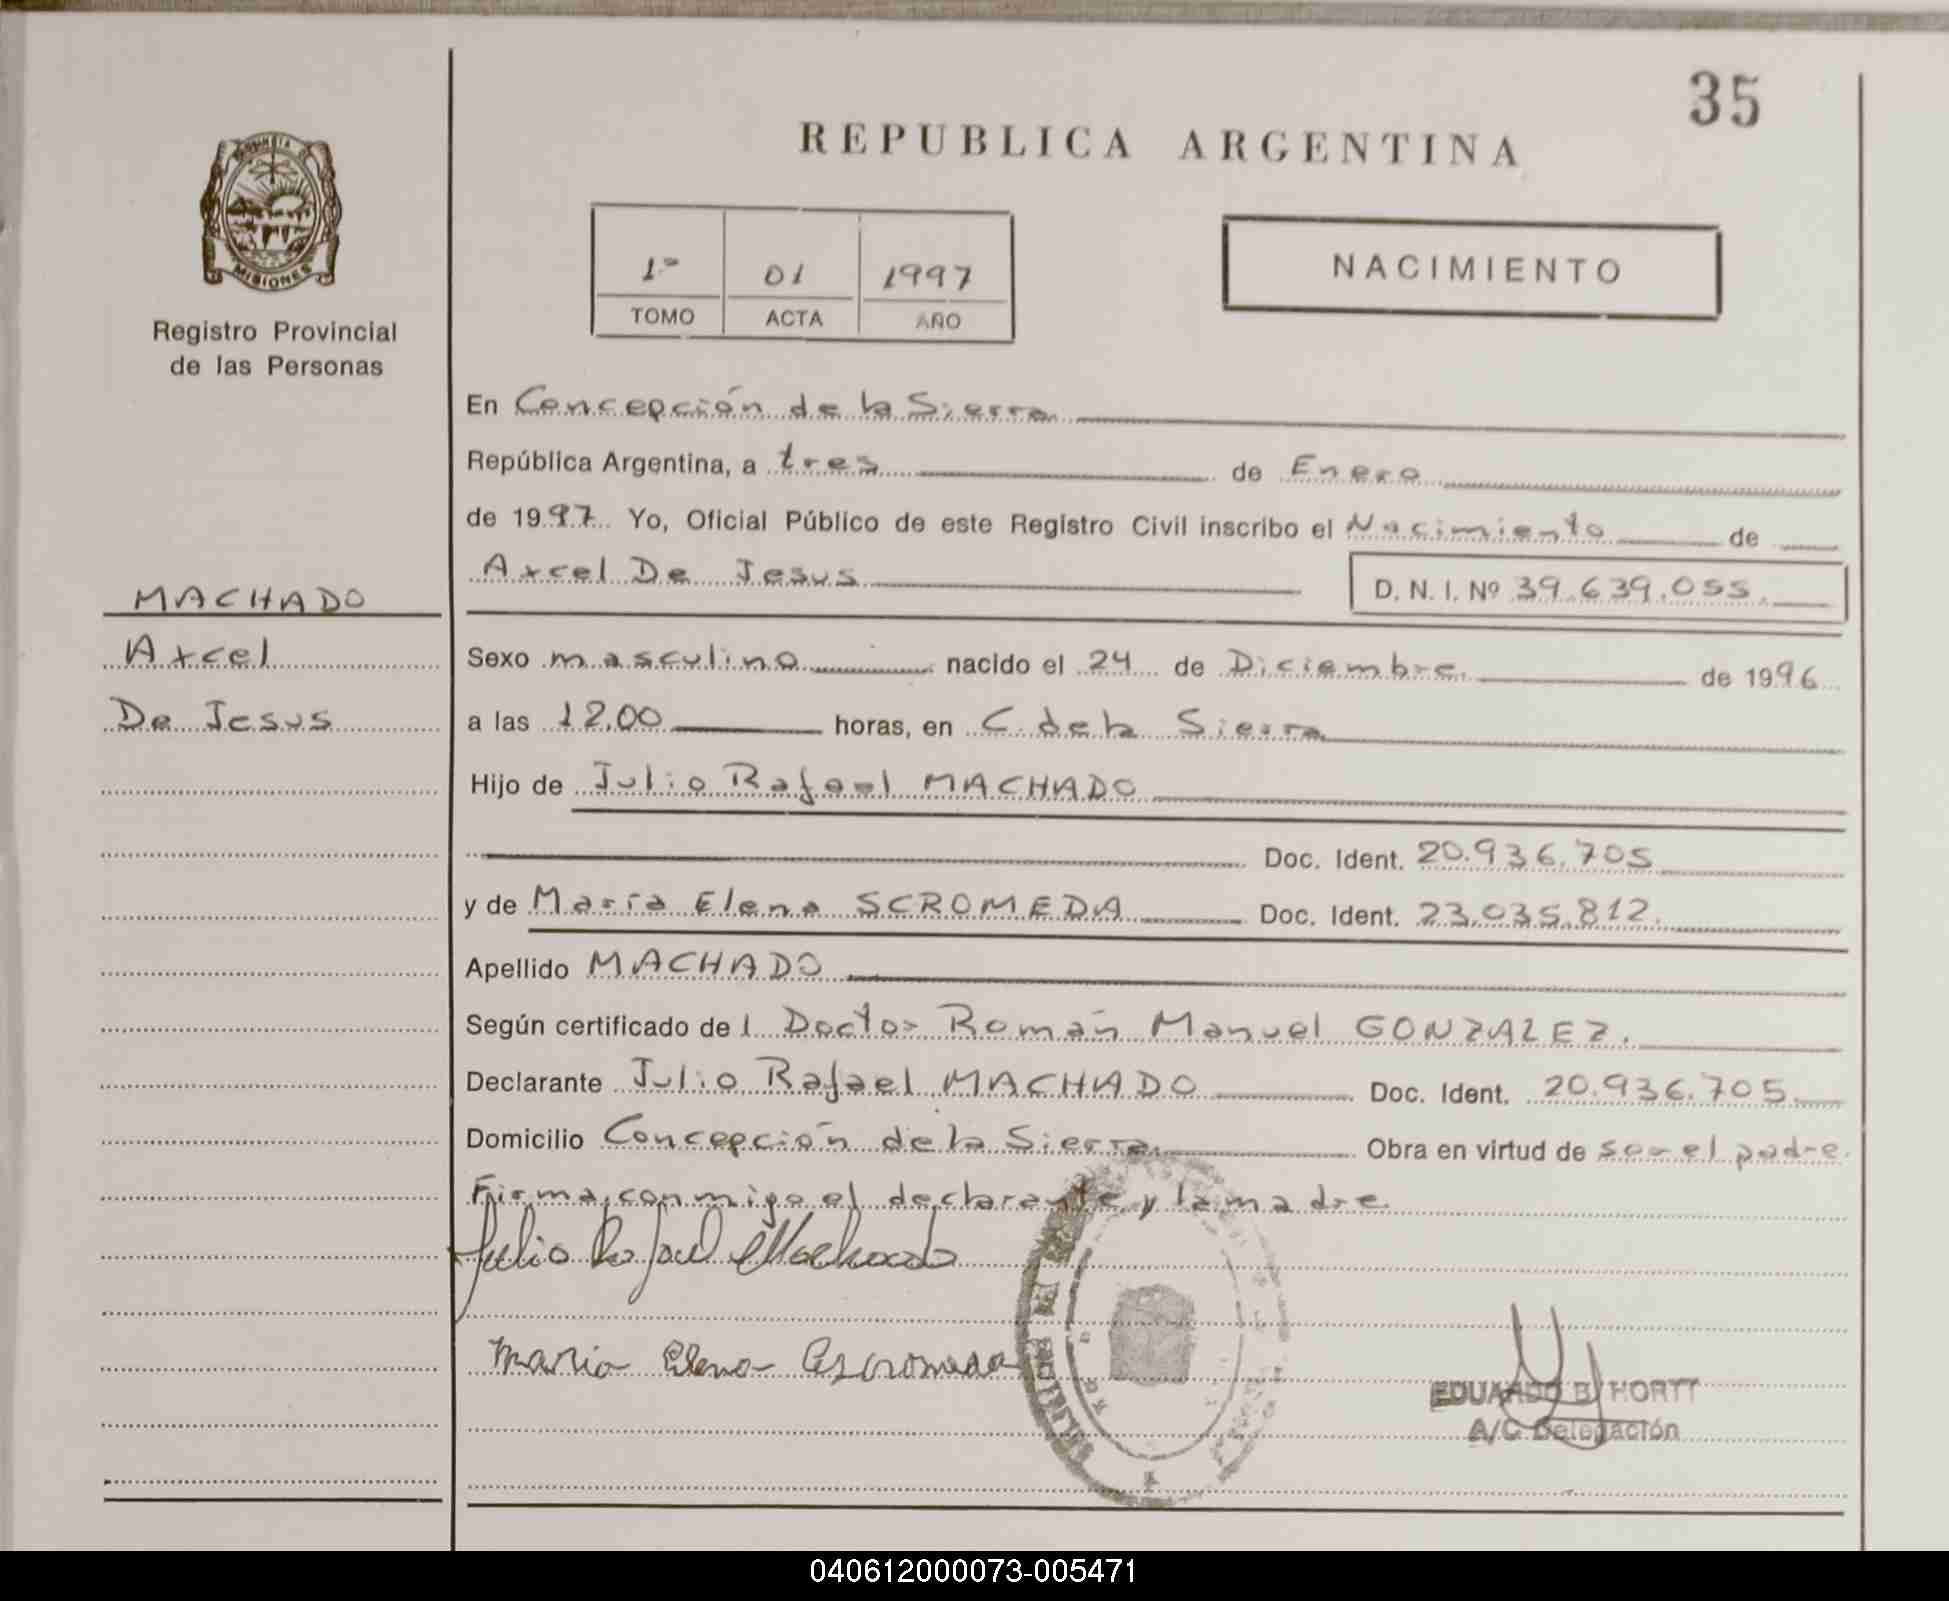 35
REPUBLICA ARGENTINA
PROVINCIA DE
MISIONES
Registro Provincial
de las Personas
1º 01 1997
TOMO ACTA AÑO
NACIMIENTO
MACHADO
Axcel
De Jesus
En Concepción de la Sierra
República Argentina, a tres de Enero
de 1997 Yo, Oficial Público de este Registro Civil inscribo el Nacimiento de
Axcel De Jesus D. N. I. Nº 39.639.055.
Sexo masculino nacido el 24 de Diciembre. de 1996
a las 12,00 horas, en C. de la Sierra
Hijo de Julio Rafael MACHADO
Doc. Ident. 20.936.705
y de María Elena SCROMEDA Doc. Ident. 23.035.812.
Apellido MACHADO
Según certificado del Doctor Román Manuel GONZALEZ.
Declarante Julio Rafael MACHADO Doc. Ident. 20.936.705.
Domicilio Concepción de la Sierra. Obra en virtud de ser el padre.
Firma conmigo el declarante y la madre.
Julio Rafael Machado
Maria Elena
EDUARDO B. HORTT
A/C Delegación
040612000073-005471